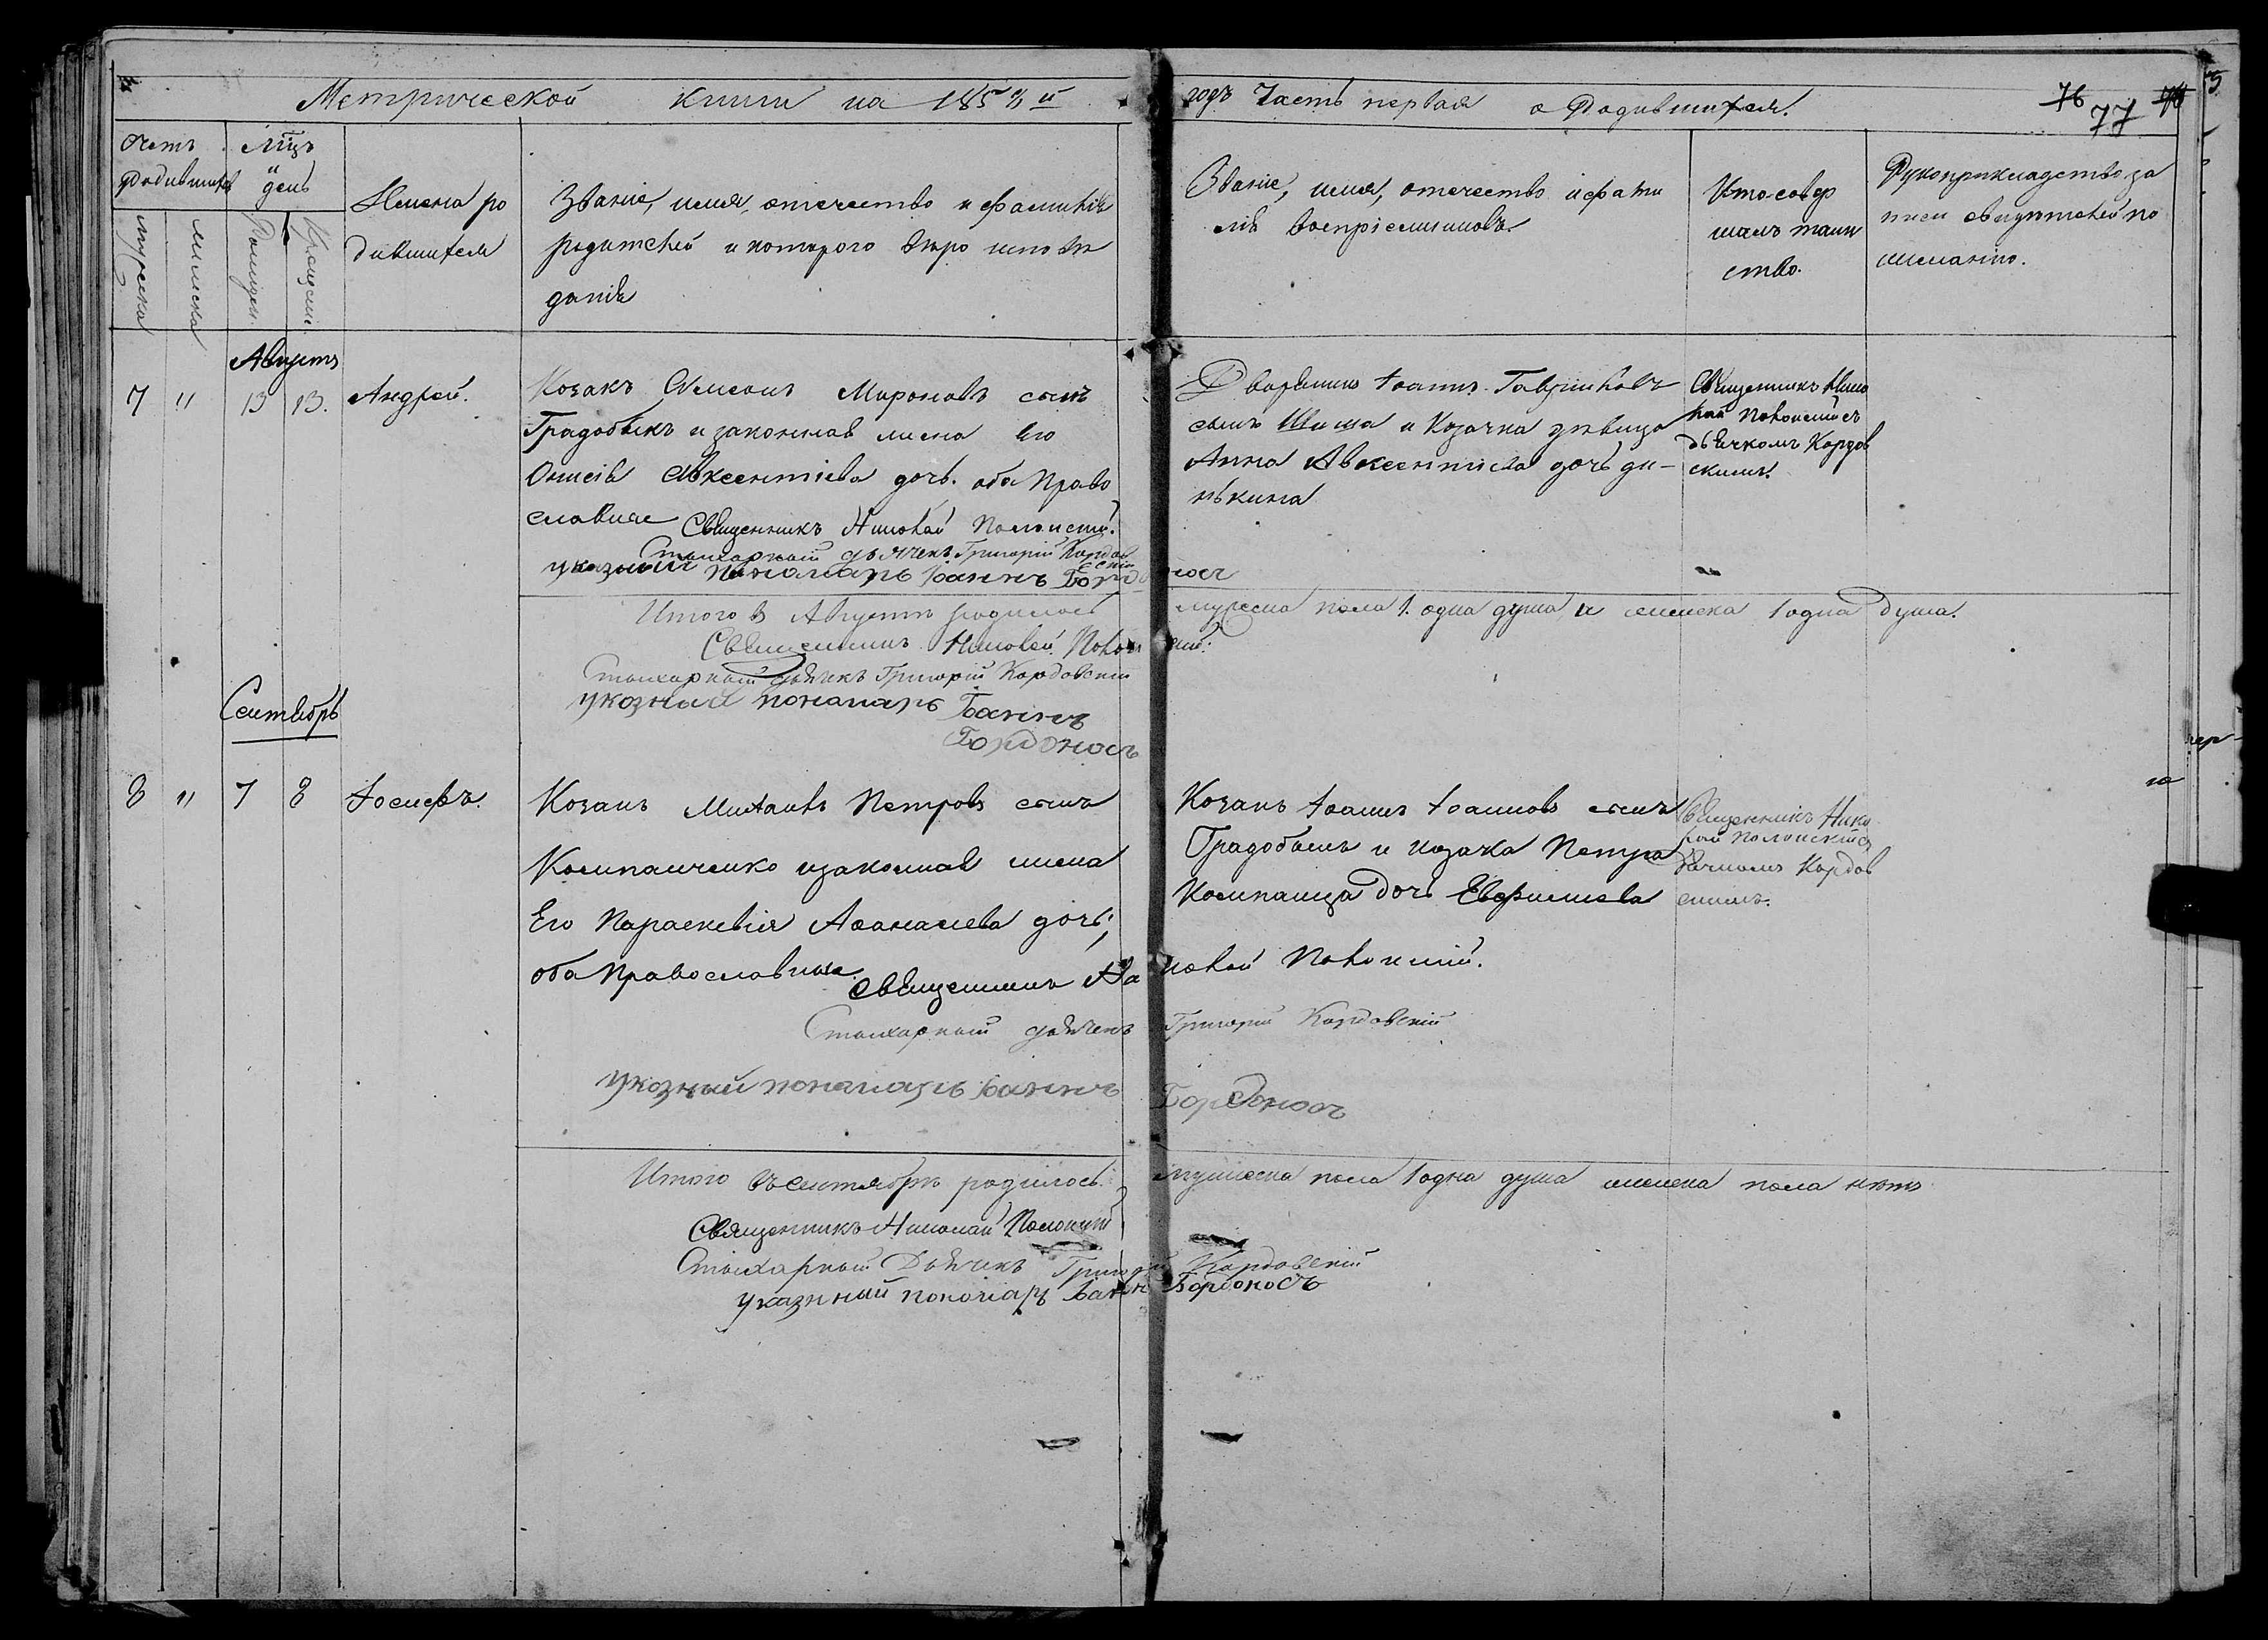 Метрической книги на 185 й
годъ Часть первая о Родившихся.
76
77
Счетъ родившихся
Мцъ и день
мужеска
женска
Рожден.
Крещен.
Имена ро
дившихся
Званіе, имя, отечество и фамилія
родителей и которого вѣро исповѣ
данія
Званіе, имя, отечество и фами
лія воспріемниковъ
Кто совер
шалъ таин
ство.
Рукоприкладство за
писи свидѣтелей по
желанію.
Августъ
7 " 13 13. Андрей.
Козакъ Симеонъ Мироновъ сынъ
Градобыкъ и законная жена его
Онисія Авксентіева дочь. оба Право
славные Священникъ Николай Полонскій.
Стихарный дьячекъ Григорій Кордов
скій
указный пономаръ Іоаннъ Бордоносъ
Дворянинъ Іоаннъ Гавриловъ
сынъ Шиша и Козачка дѣвица
Анна Авксентіева дочь
Священникъ Нико
лай Полонскій съ
дьячкомъ Кордов
скимъ.
Итого в Августѣ родилось мужеска пола 1. одна душа и женска 1 одна душа.
Священникъ Николай Полонскій:
Стихарный дьячекъ Григорій Кордовскій
указный пономаръ Іоаннъ
Бордоносъ
Сентябрь
8 " 7 8 Іосифъ.
Козакъ Михаилъ Петровъ сынъ
Компанченко изаконная жена
Его Параскевія Аѳанасіева дочь;
оба Православные. Священникъ Николай Полонскій.
Стихарный дьячекъ Григорій Кордовскій
указный пономаръ Іоаннъ Бордоносъ
Козакъ Іоаннъ Іоанновъ сынъ
Градобыкъ и козака Петра
Компанца дочь Евфимиева
Священникъ Нико
лай Полонскій съ
дьячкомъ Кордов
скимъ.
Итого въ сентябрѣ родилось: мужеска пола 1 одна душа женска пола нѣтъ
Священникъ Николай Полонскій
Стихарный Дьячекъ Григорій Кордовскій
указнный пономаръ Іоаннъ Бордоносъ